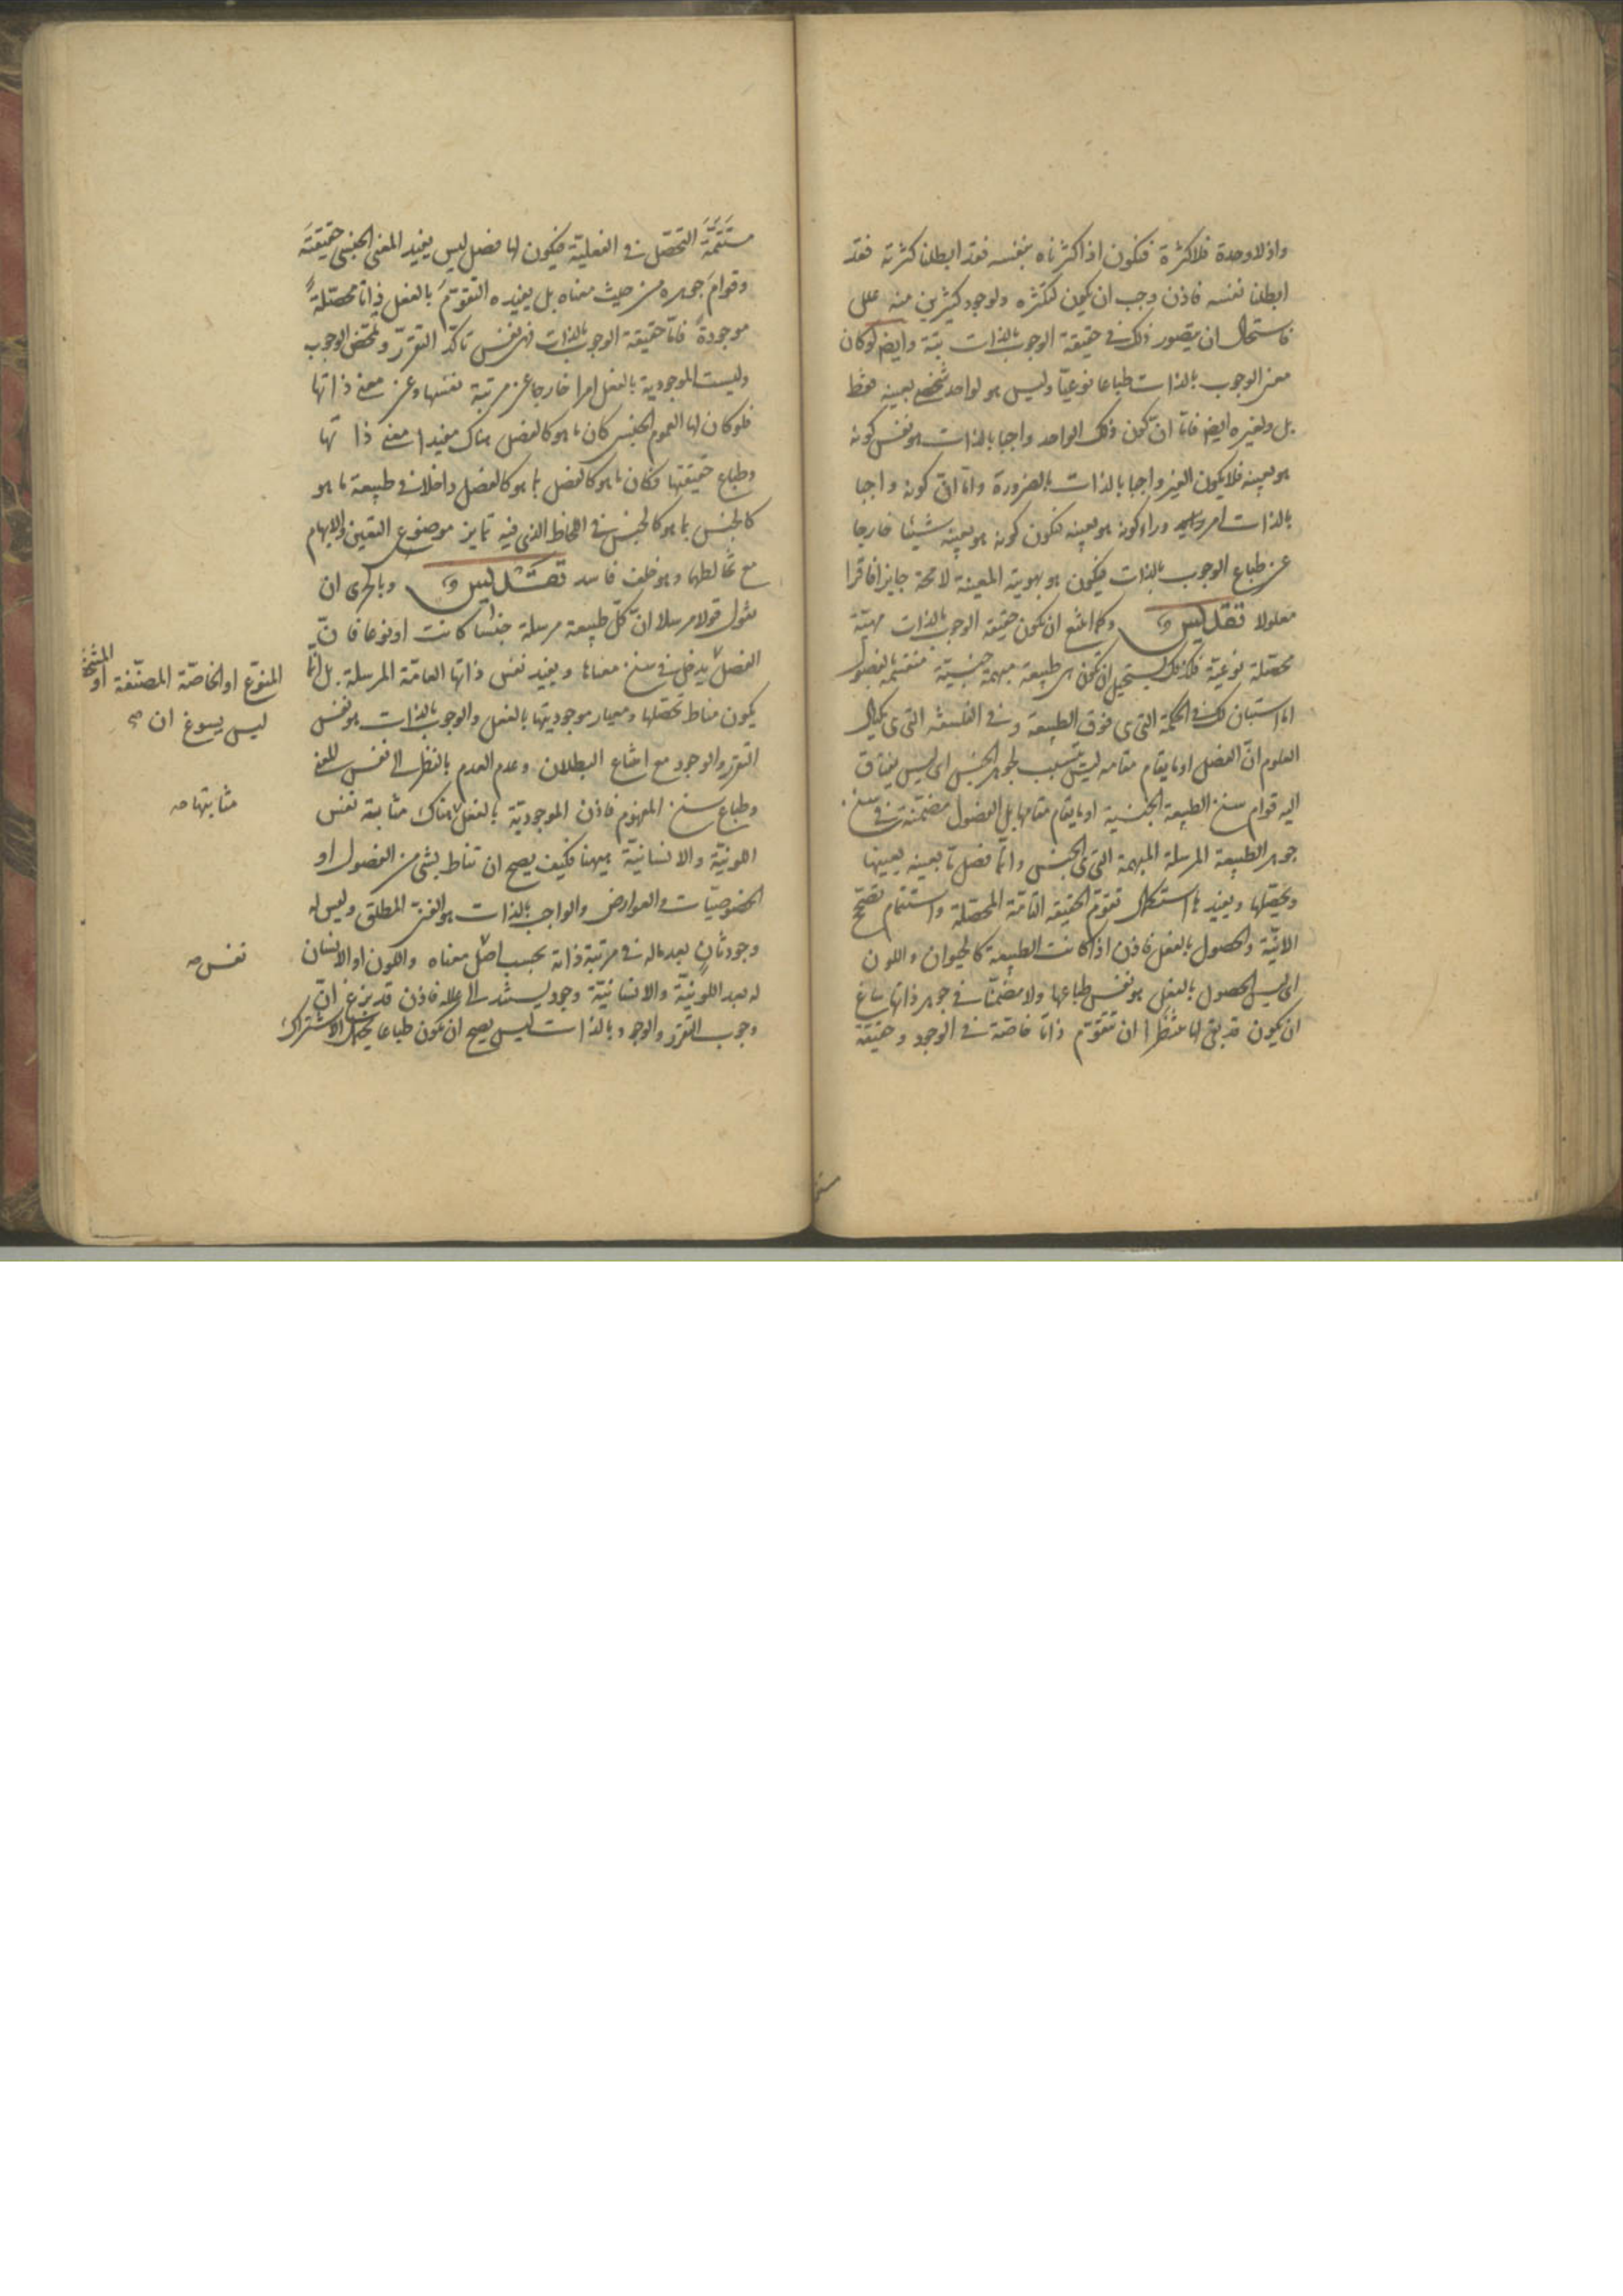 واذ لا وحدة فلا كثرة فنكون اذا كثرناه بنفسه فقد ابطلنا كثرته فقد
ابطلنا نفسه فاذن وجب ان يكون لتكثره ولوجود كثيرين منه علل
فاستحال ان يتصور ذلك في حقيقة الوجوب بالذات بتة وايضا لو كان
معنى الوجوب بالذات طباعا نوعيّا وليس هو لواحد شخصي بعينه فقط
بل ولغيره ايضا فامّا ان يكون ذلك الواحد واجبا بالذات هو نفس كونه
هو بعينه فلا يكون الغير واجبا بالذات بالضرورة وامّا ان كونه واجبا
بالذات امر وراء كونه هو بعينه فتكون كونه هو بعينه شيئا خارجا
عن طباع الوجوب بالذات فيكون هو بهويته المعينة لا محة جايزا فاقرا
معلولا تقديس وكما امتنع ان تكون حقيقة الوجوب بالذات مهيّة
محصّلة نوعيّة فكذلك يستحيل ان تكون هي طبيعة مبهمة جنسيّة منقسمة بالفصول
اما استبان لك في الحكمة التي هي فوق الطبيعة وفي الفلسفة التي هي مكيال
العلوم انّ الفصل او ما يقام مقامه ليس يتسبب لجوهر الجنس اي ليس يفتاق
اليه قوام سنخ الطبيعة الجنسية او ما يقام مقامها بل الفصول مضمّنة في سنخ
جوهر الطبيعة المرسلة المبهمة التي هي الجنس وانّما فصل ما بعينه يعيّنها
ويحصّلها ويفيدها استكمال تقوّم الحقيقة التامّة المحصّلة واستتمام تصحّح
الانّيّة والحصول بالفعل فاذن اذا كانت الطبيعة كالحيوان واللون
اي ليس الحصول بالفعل هو نفس طباعها ولا مضمّنا في جوهر ذاتها ساغ
ان يكون قد بقي لها منتظرا ان تتقوّم ذاتا خاصّة في الوجود وحقيقة
مستتمّة التحصّل في الفعليّة فيكون لها فصل ليس يفيد المعنى الجنسي حقيقتَه
وقوامَ جوهره من حيث معناه بل يفيده التقوّمَ بالفعل ذاتا محصّلةً
موجودةً فامّا حقيقة الوجوب بالذات فهي نفس تاكّد التقرّر وتمحّض الوجوب
وليست الموجودية بالفعل امرا خارجا عن مرتبة نفسها وعن معنى ذاتها
فلو كان لها العموم الجنسي كان ما هو كالفصل هناك مفيدا معنى ذاتها
وطباع حقيقتها فكان ما هو كالفصل بما هو كالفصل داخلا في طبيعة ما هو
كالجنس بما هو كالجنس في اللحاظ الذي فيه تمايز موضوع التعين والابهام
مع تخالطهما وهو خلف فاسد تقديس وبالحرى ان
نقول قولا مرسلا انّ كلّ طبيعة مرسلة جنسا كانت او نوعا فانّ
الفصل يدخل في سنخ معناها ويفيد نفس ذاتها العامّة المرسلة بل انّما
المنوّع او الخاصّة المصنّفة او المشخّصة
ليس يسوغ ان صح
يكون مناط تحصّلها ومعيار موجوديتها بالفعل والوجوب بالذات هو نفس
التقرر والوجود مع امتناع البطلان وعدم العدم بالنظر الى نفس المعنى
وطباع سنخ المفهوم فاذن الموجوديّة بالفعل هناك مثابة نفس
مثابتها صح
اللونيّة والانسانيّة ههنا فكيف يصح ان تناط بشيء من الفصول او
الخصوصيّات والعوارض والواجب بالذات هو الغنيّ المطلق وليس له
وجود ثانٍ بعد ماله في مرتبة ذاته بحسب اصل معناه واللون او الانسان
نفس صح
له بعد اللونيّة والانسانيّة وجود يستند الى علله فاذن قد بزغ انّ
وجوب التقرر والوجود بالذات ليس يصح ان يكون طباعا يحتمل الاشتراك